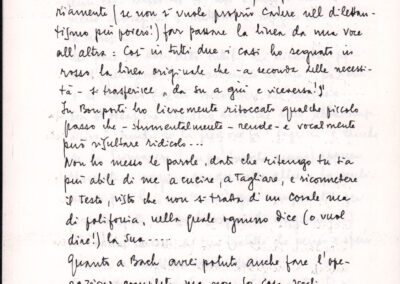 riamente (se non si vuole proprio cadere nell dilettan-
tismo più povero!) far passare la linea da una voce
all'altra: Così in tutti due i casi ho segnato in
rosso, la linea originale che - a seconda delle necessi-
tà - si trasferisce „ da su a giù e viceversa!"
In Bonporti ho lievemente ritoccato qualche piccolo
passo che - strumentalmente - rende - e vocalmente
può risultare ridicolo...
Non ho messo le parole, dato che ritengo tu sia
più abile di me a cucire, a tagliare, e riconnettere
il testo, visto che non si tratta di un corale ma
di polifonia, nella quale ognuno dice (o vuol
dire!) la sua....
Quanto a Bach avrei potuto anche fare l'ope-
razione completa ma non lo